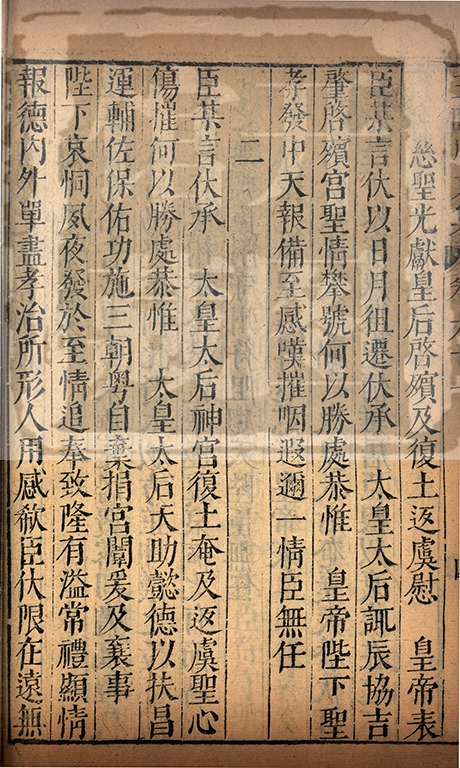 慈聖光獻皇后啓殯及復土返虞慰　皇帝表
臣某言伏以日月徂遷伏承　太皇太后諏辰協吉
肇啓殯宮聖情攀號何以勝處恭惟　皇帝陛下聖
孝發中天報備至感嘆摧咽遐邇一情臣無任
二
臣某言伏承　太皇太后神宮復土奄及返虞聖心
傷摧何以勝處恭惟　太皇太后天助懿德以扶昌
運輔佐保佑功施三朝粤自棄捐宮闈爰及襄事
陛下哀恫夙夜發於至情追奉致隆有溢常禮顯情
報德內外單盡孝治所形人用感欷臣伏限在遠無